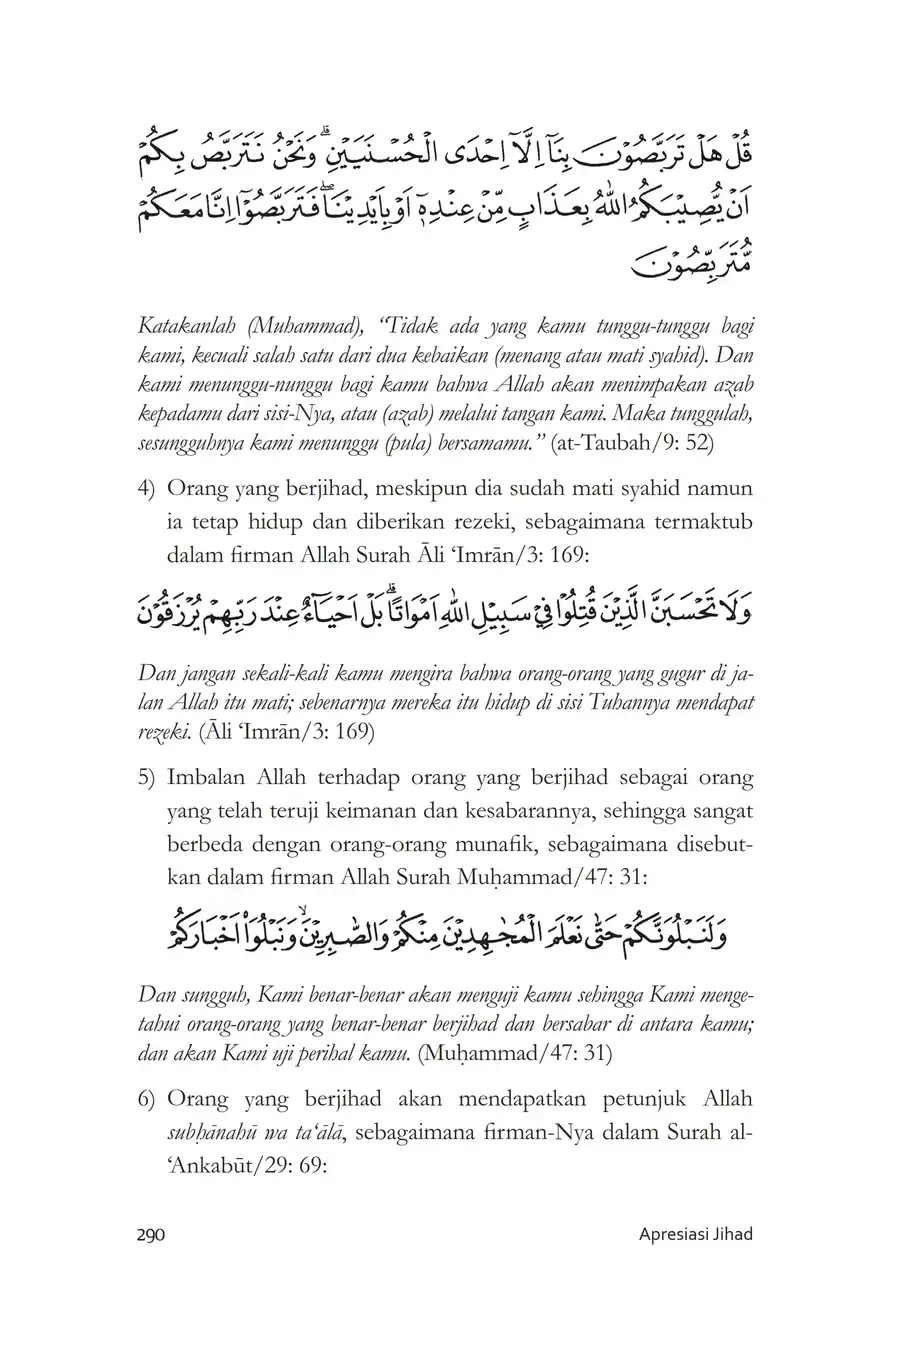 قُلْ هَلْ تَرَبَّصُوْنَ بِنَآ اِلَّآ اِحْدَى الْحُسْنَيَيْنِۗ وَنَحْنُ نَتَرَبَّصُ بِكُمْ
اَنْ يُّصِيْبَكُمُ اللّٰهُ بِعَذَابٍ مِّنْ عِنْدِهٖٓ اَوْ بِاَيْدِيْنَاۖ فَتَرَبَّصُوْٓا اِنَّا مَعَكُمْ
مُّتَرَبِّصُوْنَ
Katakanlah (Muhammad), “Tidak ada yang kamu tunggu-tunggu bagi
kami, kecuali salah satu dari dua kebaikan (menang atau mati syahid). Dan
kami menunggu-nunggu bagi kamu bahwa Allah akan menimpakan azab
kepadamu dari sisi-Nya, atau (azab) melalui tangan kami. Maka tunggulah,
sesungguhnya kami menunggu (pula) bersamamu.” (at-Taubah/9: 52)
4) Orang yang berjihad, meskipun dia sudah mati syahid namun
ia tetap hidup dan diberikan rezeki, sebagaimana termaktub
dalam firman Allah Surah Āli ‘Imrān/3: 169:
وَلَا تَحْسَبَنَّ الَّذِيْنَ قُتِلُوْا فِيْ سَبِيْلِ اللّٰهِ اَمْوَاتًاۗ بَلْ اَحْيَاۤءٌ عِنْدَ رَبِّهِمْ يُرْزَقُوْنَ
Dan jangan sekali-kali kamu mengira bahwa orang-orang yang gugur di ja-
lan Allah itu mati; sebenarnya mereka itu hidup di sisi Tuhannya mendapat
rezeki. (Āli ‘Imrān/3: 169)
5) Imbalan Allah terhadap orang yang berjihad sebagai orang
yang telah teruji keimanan dan kesabarannya, sehingga sangat
berbeda dengan orang-orang munafik, sebagaimana disebut-
kan dalam firman Allah Surah Muḥammad/47: 31:
وَلَنَبْلُوَنَّكُمْ حَتّٰى نَعْلَمَ الْمُجٰهِدِيْنَ مِنْكُمْ وَالصّٰبِرِيْنَۙ وَنَبْلُوَا۟ اَخْبَارَكُمْ
Dan sungguh, Kami benar-benar akan menguji kamu sehingga Kami menge-
tahui orang-orang yang benar-benar berjihad dan bersabar di antara kamu;
dan akan Kami uji perihal kamu. (Muḥammad/47: 31)
6) Orang yang berjihad akan mendapatkan petunjuk Allah
subḥānahū wa ta‘ālā, sebagaimana firman-Nya dalam Surah al-
‘Ankabūt/29: 69:
290 Apresiasi Jihad